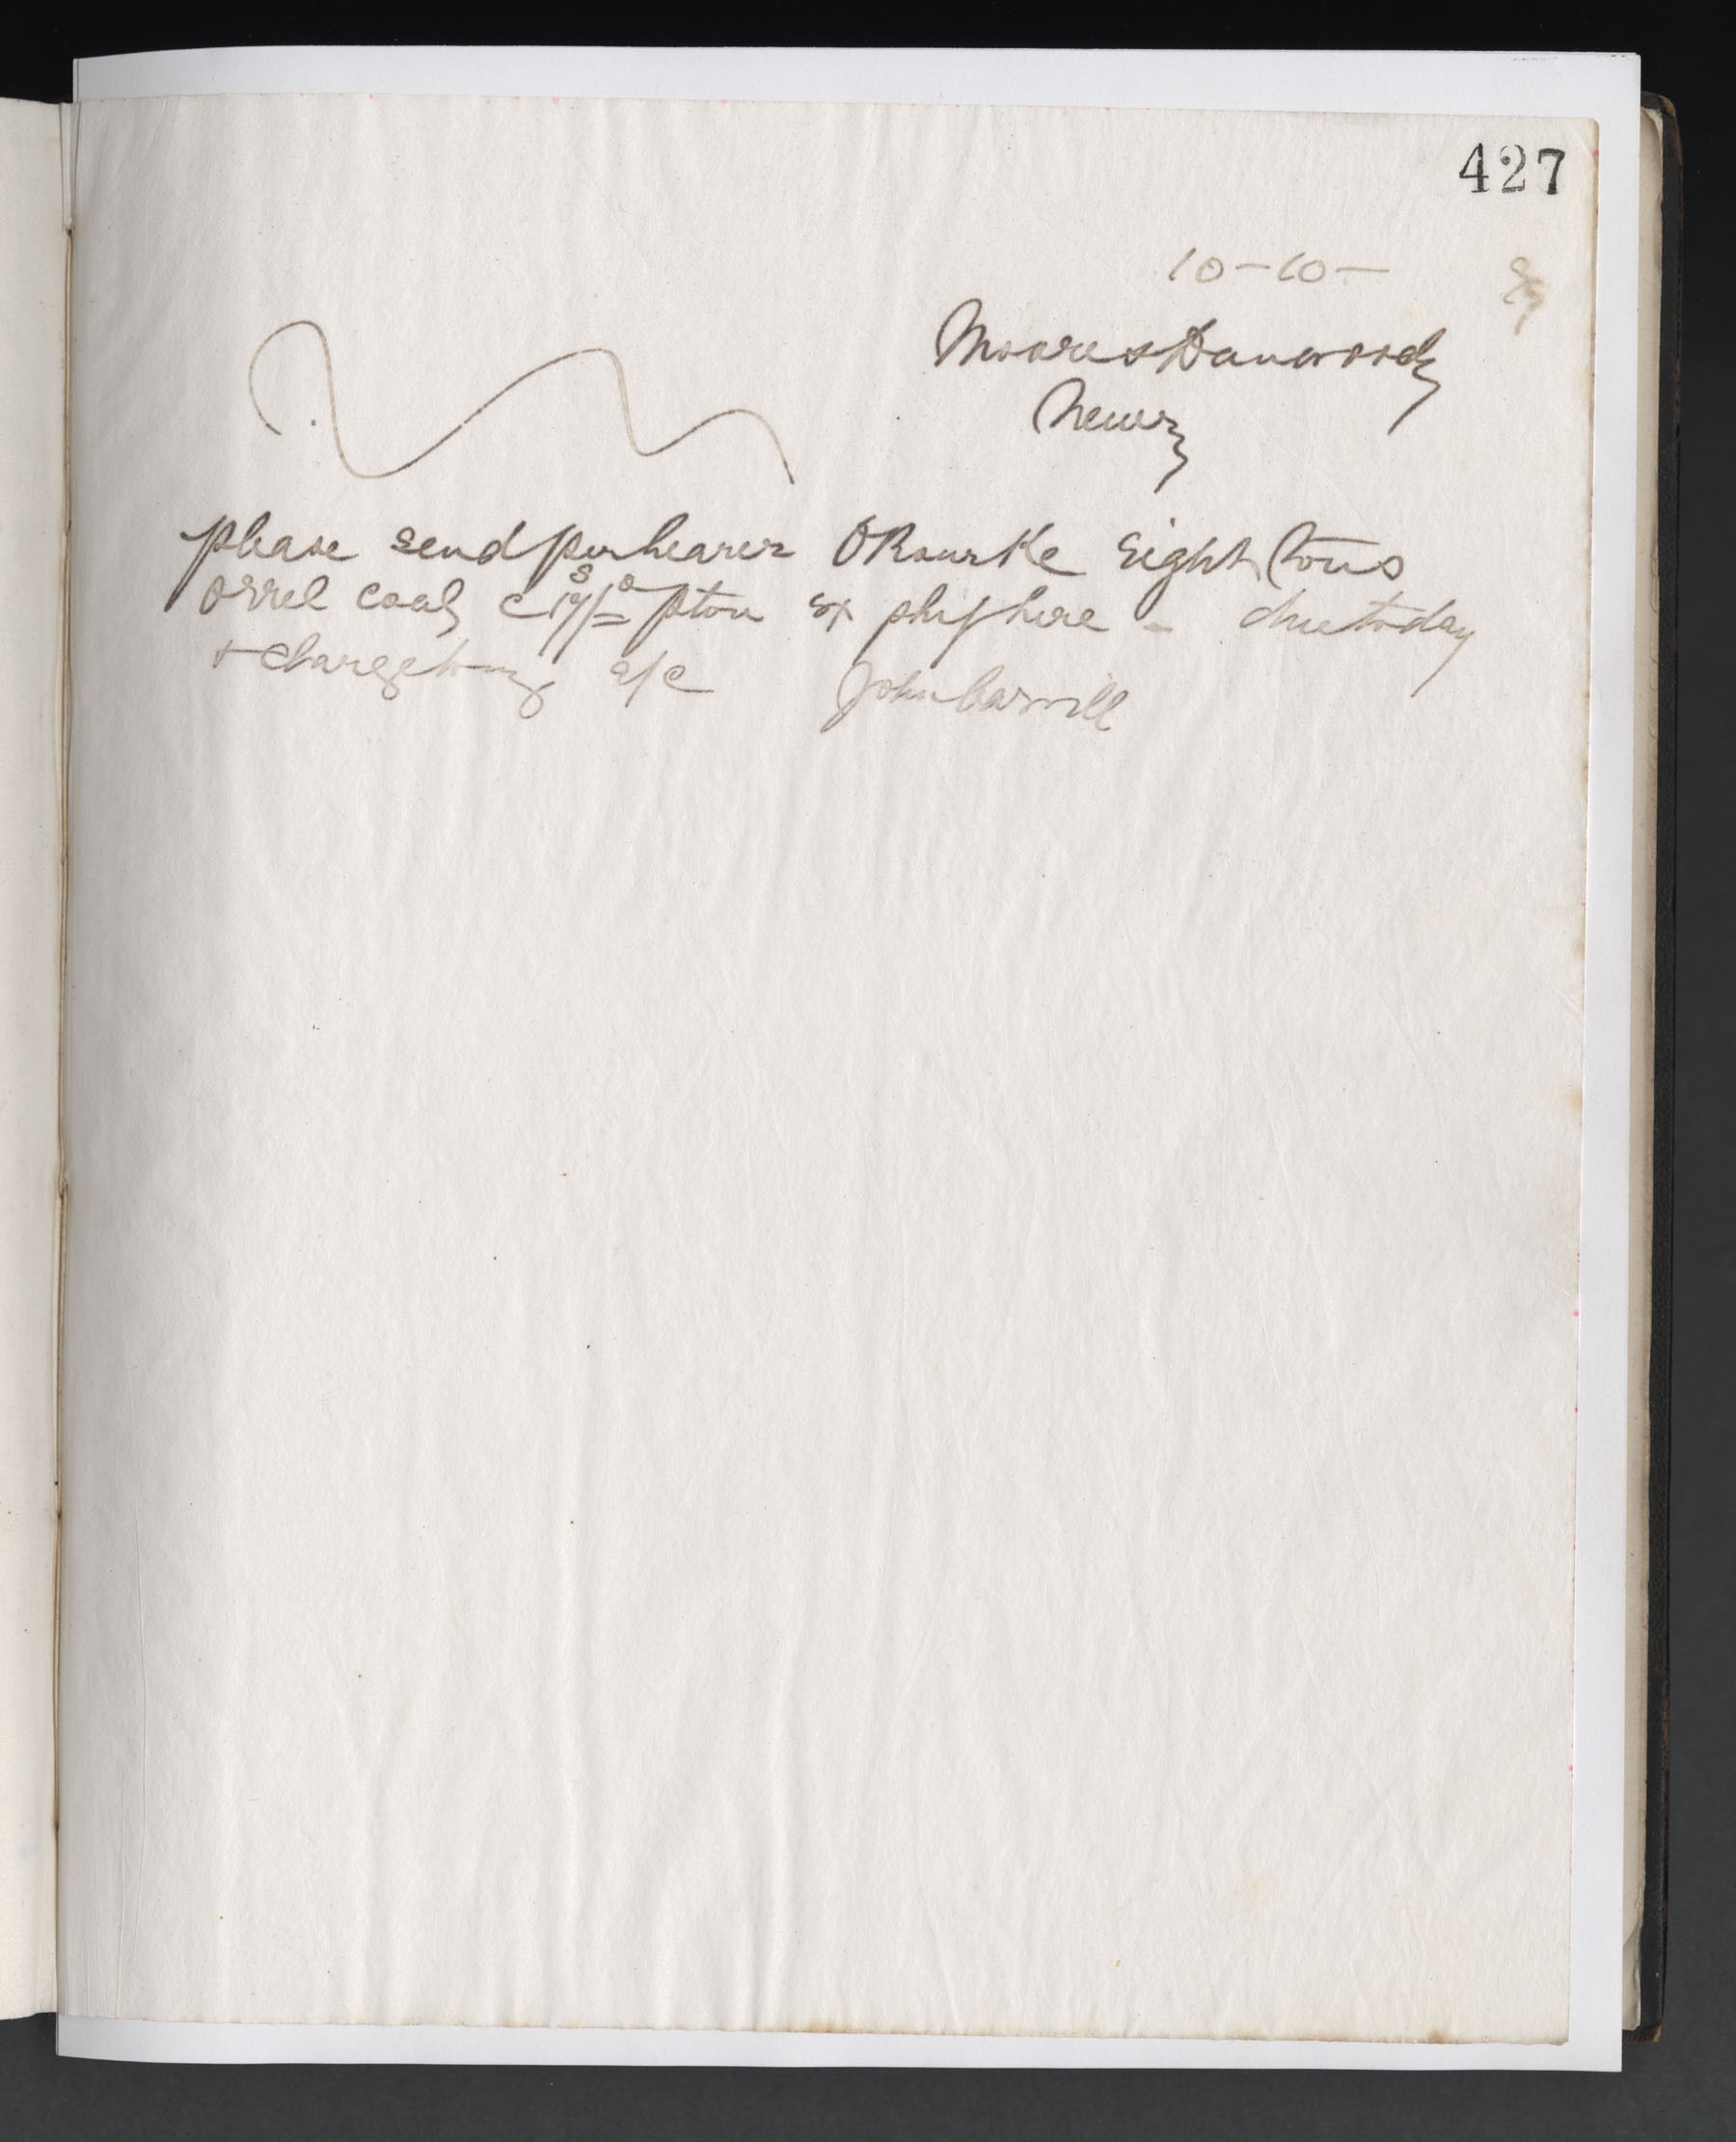 427
10-10-
Moore & Dunwoody
Newry
please send per bearer O'Rourke Eight Tons
Orrel coals @ 19/- p ton ex ship here - due today
& charge to my a/c John Carvill